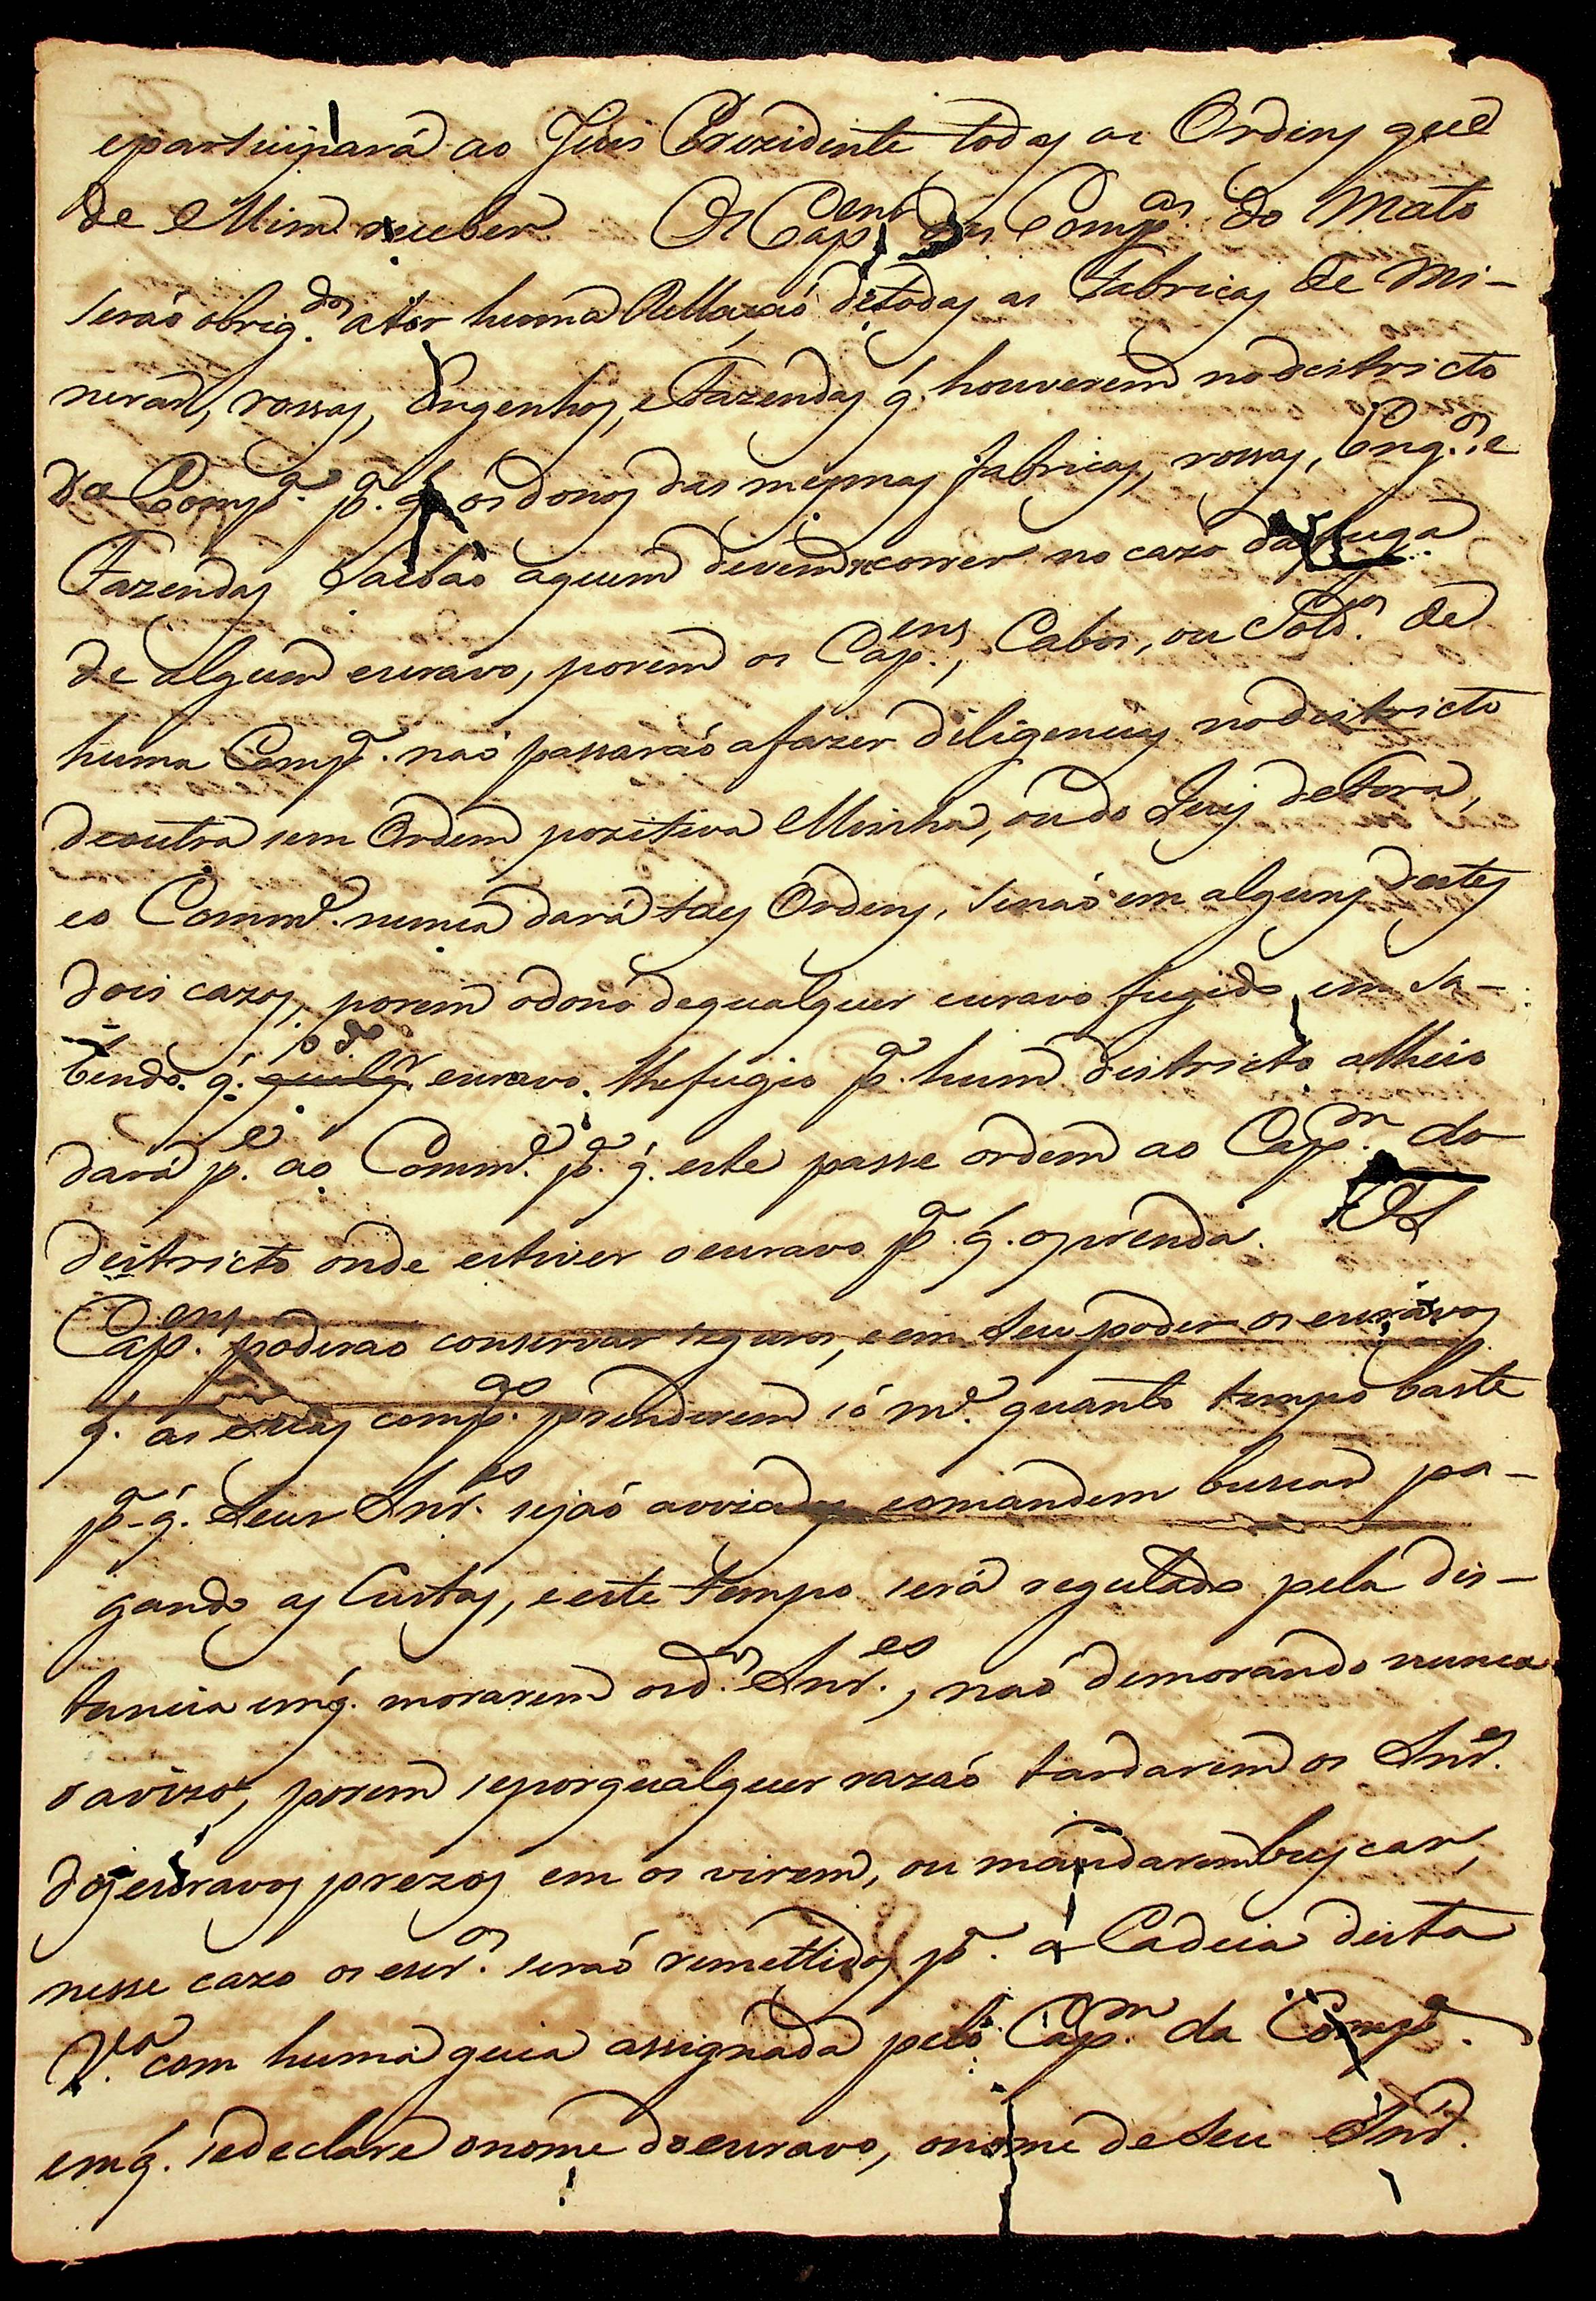 eparticipará ao Juis Prezidente todas as Ordens que
de Mim receber Os Cap.ens das Comp.as do Mato
seraó obrig.dos a ter huma Rellaçaó de todas as Fabricas de Mi-
nerar, rossas, Engenhos, e Fazendas q. houverem no destricto
da Comp.ª p.ª q. os donos das mesmas fabricas, rossas, Eng.os e
Fazendas saibaó aquem devem recorrer no cazo da fuga
de algum escravo, porem os Cap.ens, Cabos, ou Sold.os de
huma Comp.ª naó passaraó afazer diligencias no destricto
deoutra sem Ordem pozitiva Minha, ou do Juis deFora,
eo Comm.e nunca dará taes Ordens, senaó em alguns destes
dois cazos, porem odono dequalquer escravo fugido em sa-
bendo q. o d.o escravo. sefugio p.ª hum destricto alheio
dará p.e ao Comm.e p.ª q. este passe ordem ao Cap.m do
destricto onde estiver oescravo p.ª q. oprenda. Os
Cap.ens poderaó conservar seguros, eem seu poder os escravos
q. as suas comp.as prenderem só m.e quanto tempo baste
p.ª q. seus Snr.es sejaó avizados eomandem buscar pa-
gando as Custas, eeste tempo será regulado pela dis-
tancia emq. morarem osd.os Snr.es, naó demorando nunca
o avizo, porem seporqualquer razaó tardarem os Snr.es
dos escravos prezos em os virem, ou mandarem buscar,
nesse cazo os escr.os seraó remettidos p.ª a Cadeia desta
V.ª com huma guia assignada pelo Cap.m da Comp.ª
emq. sedeclare onome doescravo, onome deseu Snr.